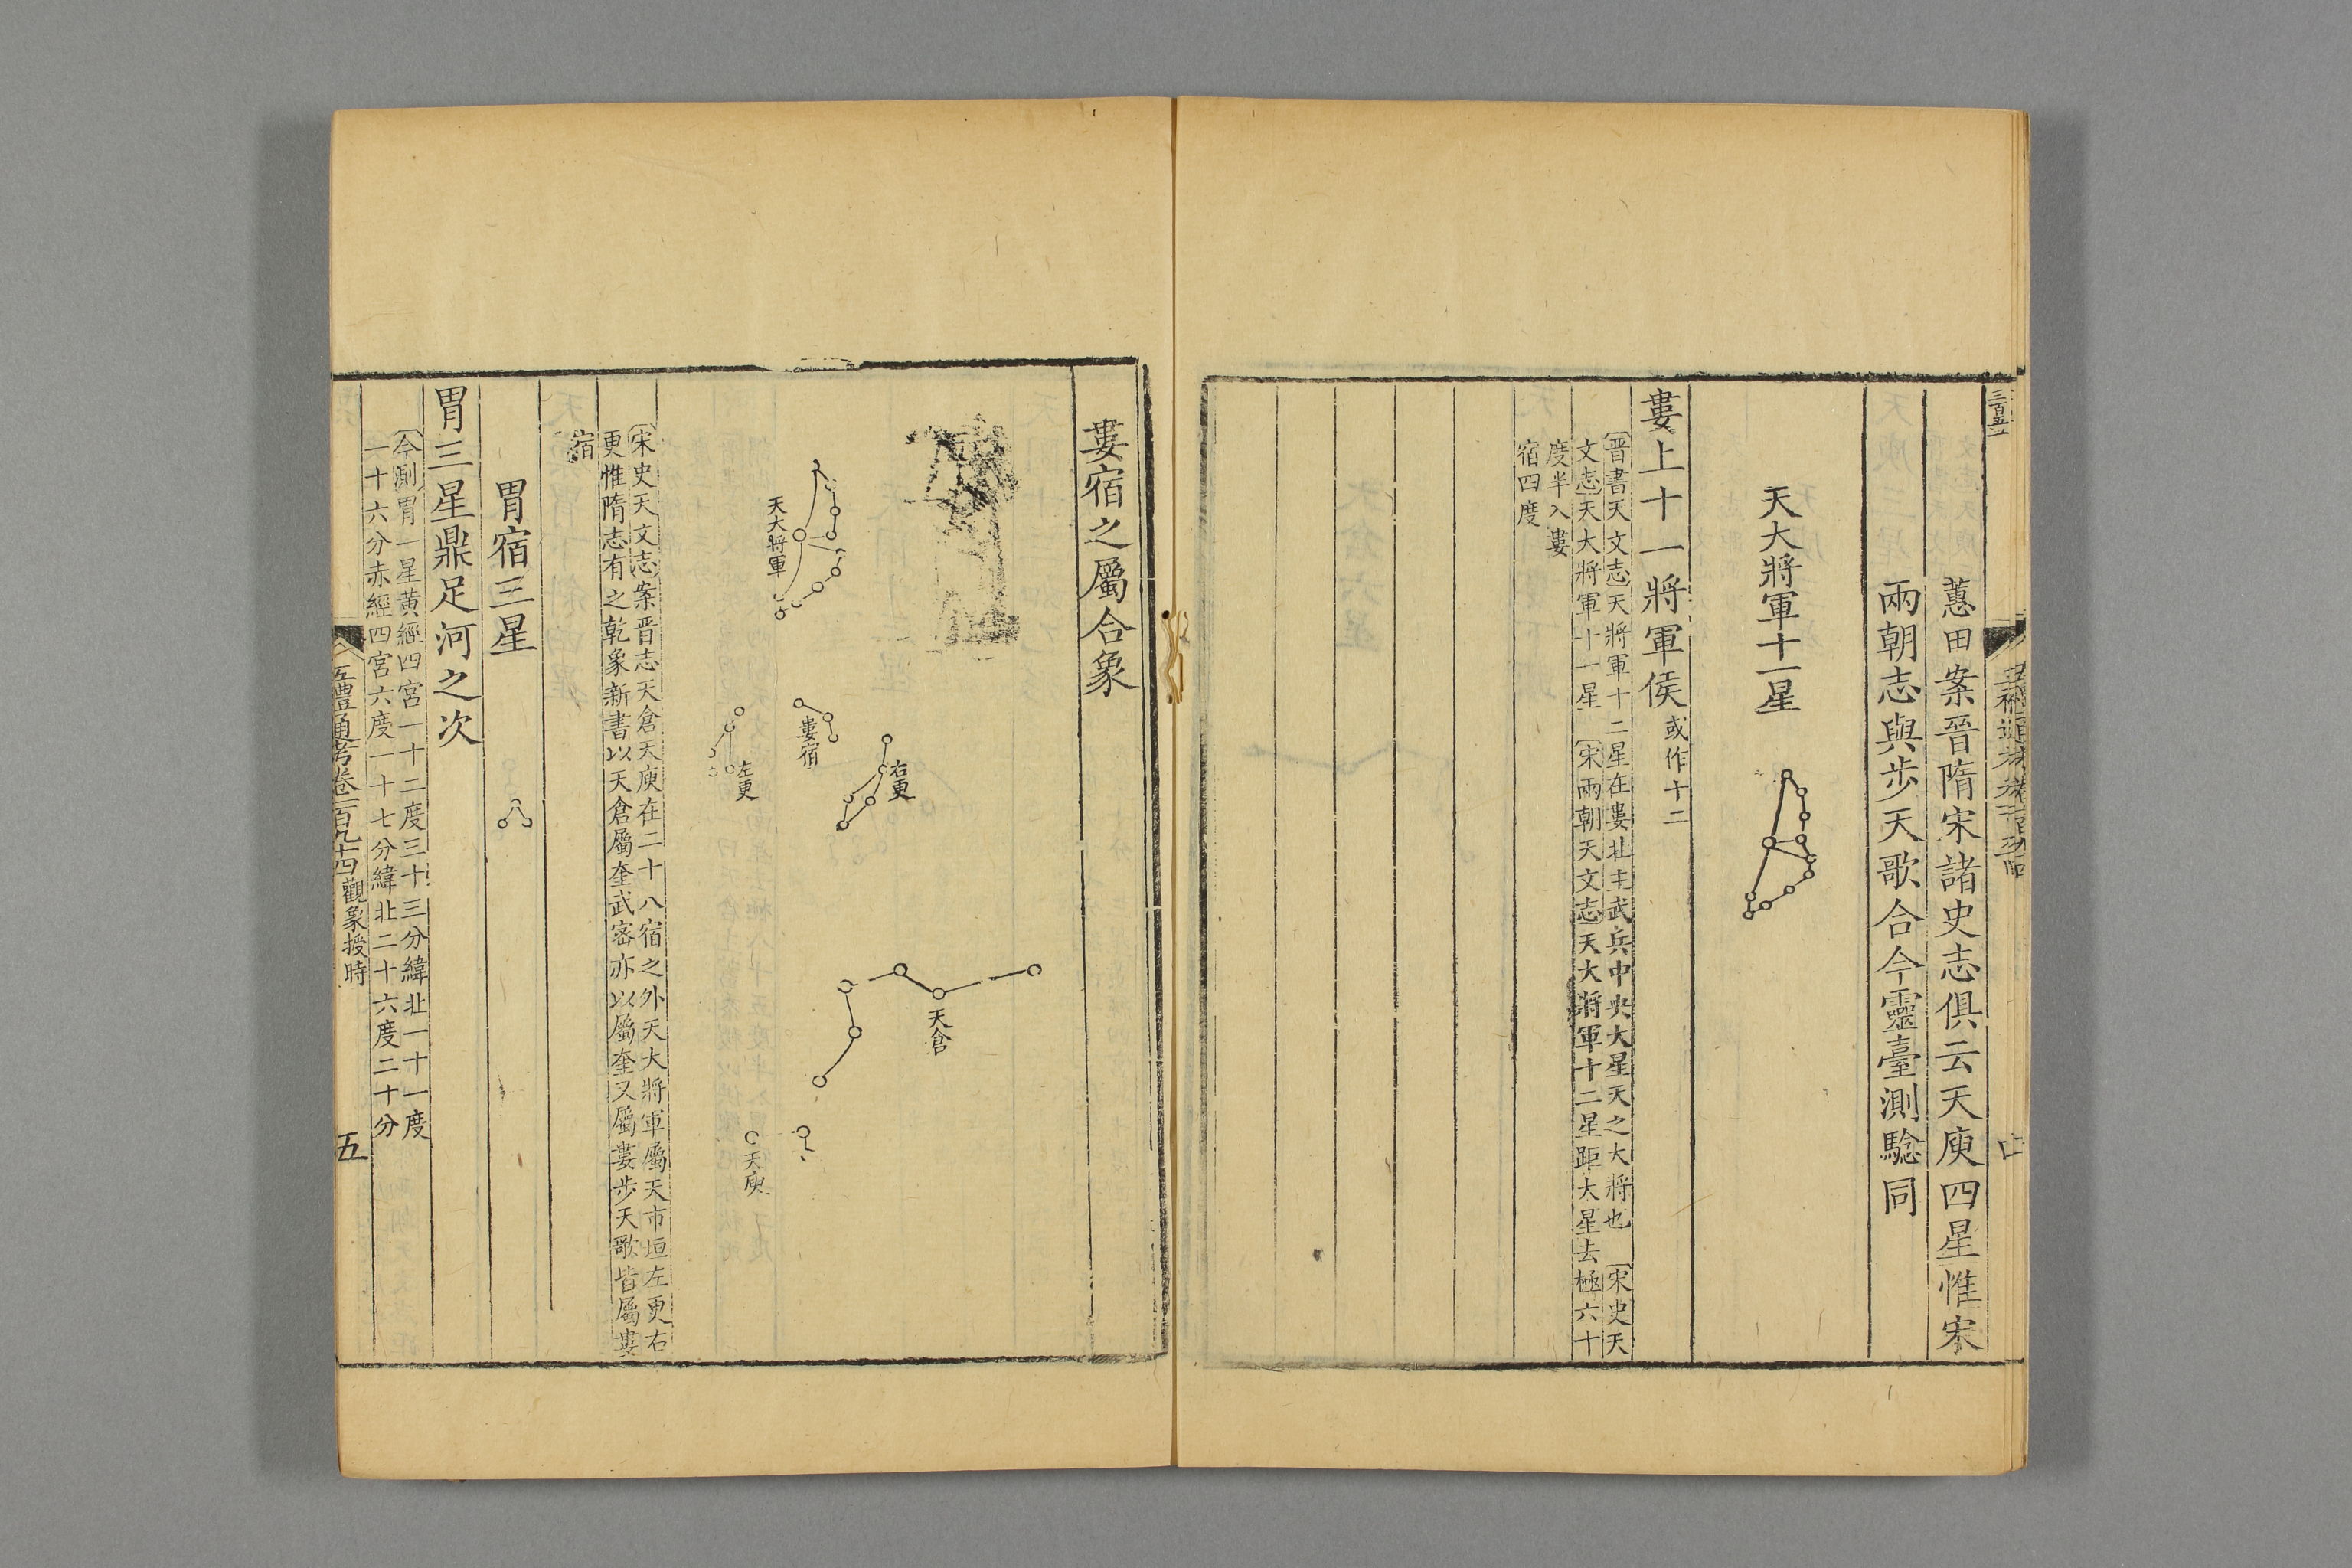 蕙田案晉隋宋諸史志俱云天庾四星惟宋
兩朝志與步天歌合今靈臺測騐同
天大將軍十一星
婁上十一將軍侯或作十二
晋書天文志天將軍十二星在婁北主武兵中央大星天之大將也 宋史天
文志天大將軍十一星 宋兩朝天文志天大將軍十二星距大星去極六十
度半入婁
宿四度
婁宿之屬合象
右更
天倉
天大將軍
婁宿
左更
天庾
宋史天文志案晋志天倉天庾在二十八宿之外天大將軍屬天市垣左更右
更惟隋志有之乾象新書以天倉屬奎武密亦以屬奎又屬婁步天歌皆屬婁
宿
胃宿三星
胃三星鼎足河之次
今測胃一星黄經四宮一十二度三十三分緯北一十一度
一十六分赤經四宮六度一十七分緯北二十六度二十分
五禮通考卷一百九十四觀象授時
五